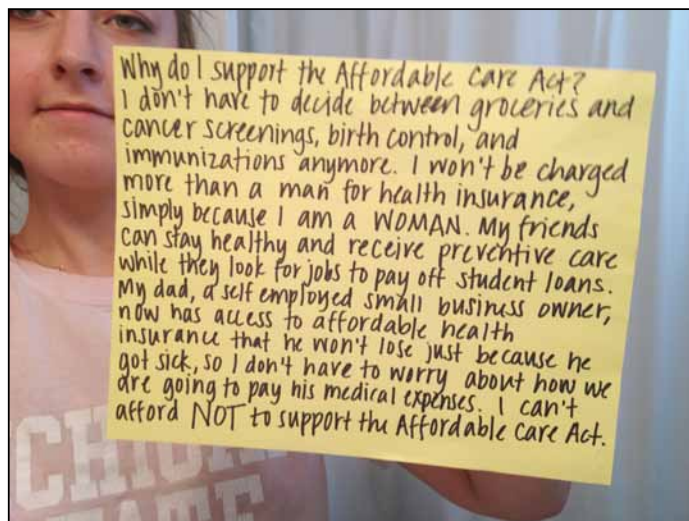 Why do I support the Affordable Care Act?
I don't have to decide between groceries and
cancer screenings, birth control, and
immunizations anymore. I won't be charged
more than a man for health insurance,
simply because I am a WOMAN. My friends
can stay healthy and receive preventive care
while they look for jobs to pay off student loans.
My dad, a self employed small business owner,
now has access to affordable health
insurance that he won't lose just because he
got sick, so I don't have to worry about how we
are going to pay his medical expenses. I can't
afford NOT to support the Affordable Care Act.